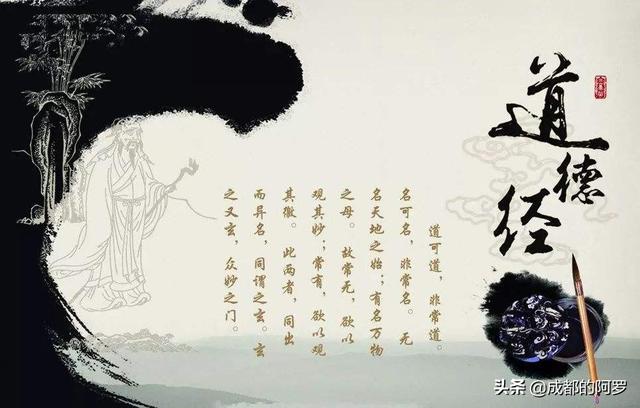 道德经
道可道，非常道。
名可名，非常名。 无
名天地之始；有名万物
之母。 故常无，欲以
观其妙；常有，欲以观
其徼。 此两者，同出
而异名，同谓之玄。玄
之又玄，众妙之门。
头条 @成都的阿罗